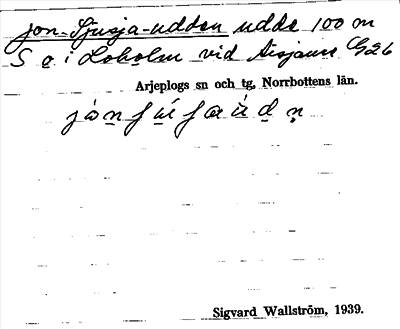 Jon-Sjusja-udden udde 100 m
S o. i Loholm vid Aisjaure G26
Arjeplogs sn och tg, Norrbottens län.
Sigvard Wallström, 1939.